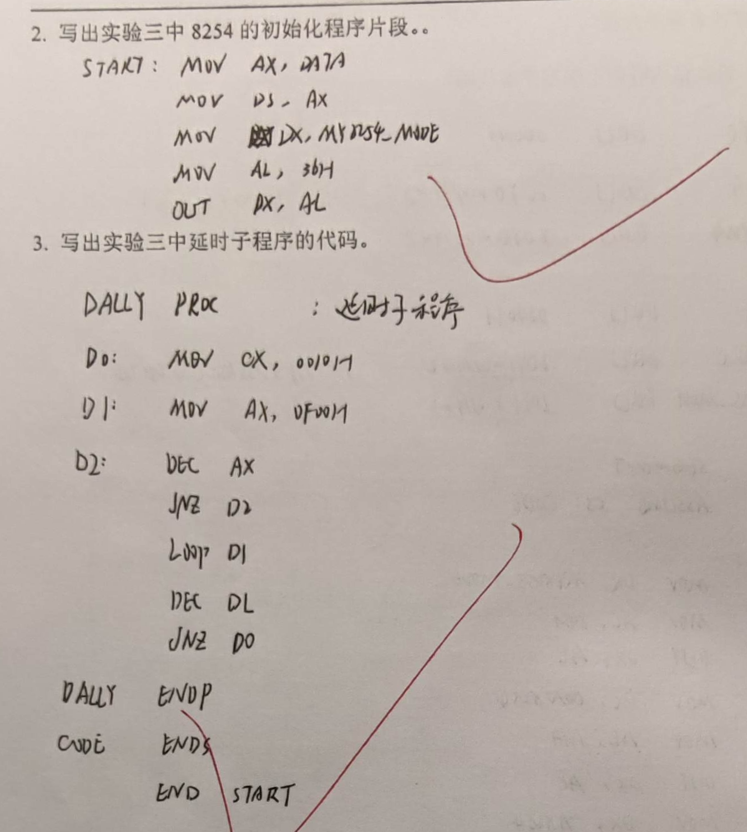 2. 写出实验三中 8254 的初始化程序片段。。
START: MOV AX, DATA
MOV DS, AX
MOV DX, MY8254_MODE
MOV AL, 36H
OUT DX, AL
3. 写出实验三中延时子程序的代码。
DALLY PROC : 延时子程序
D0: MOV CX, 0010H
D1: MOV AX, 0F00H
D2: DEC AX
JNZ D2
LOOP D1
DEC DL
JNZ D0
DALLY ENDP
CODE ENDS
END START